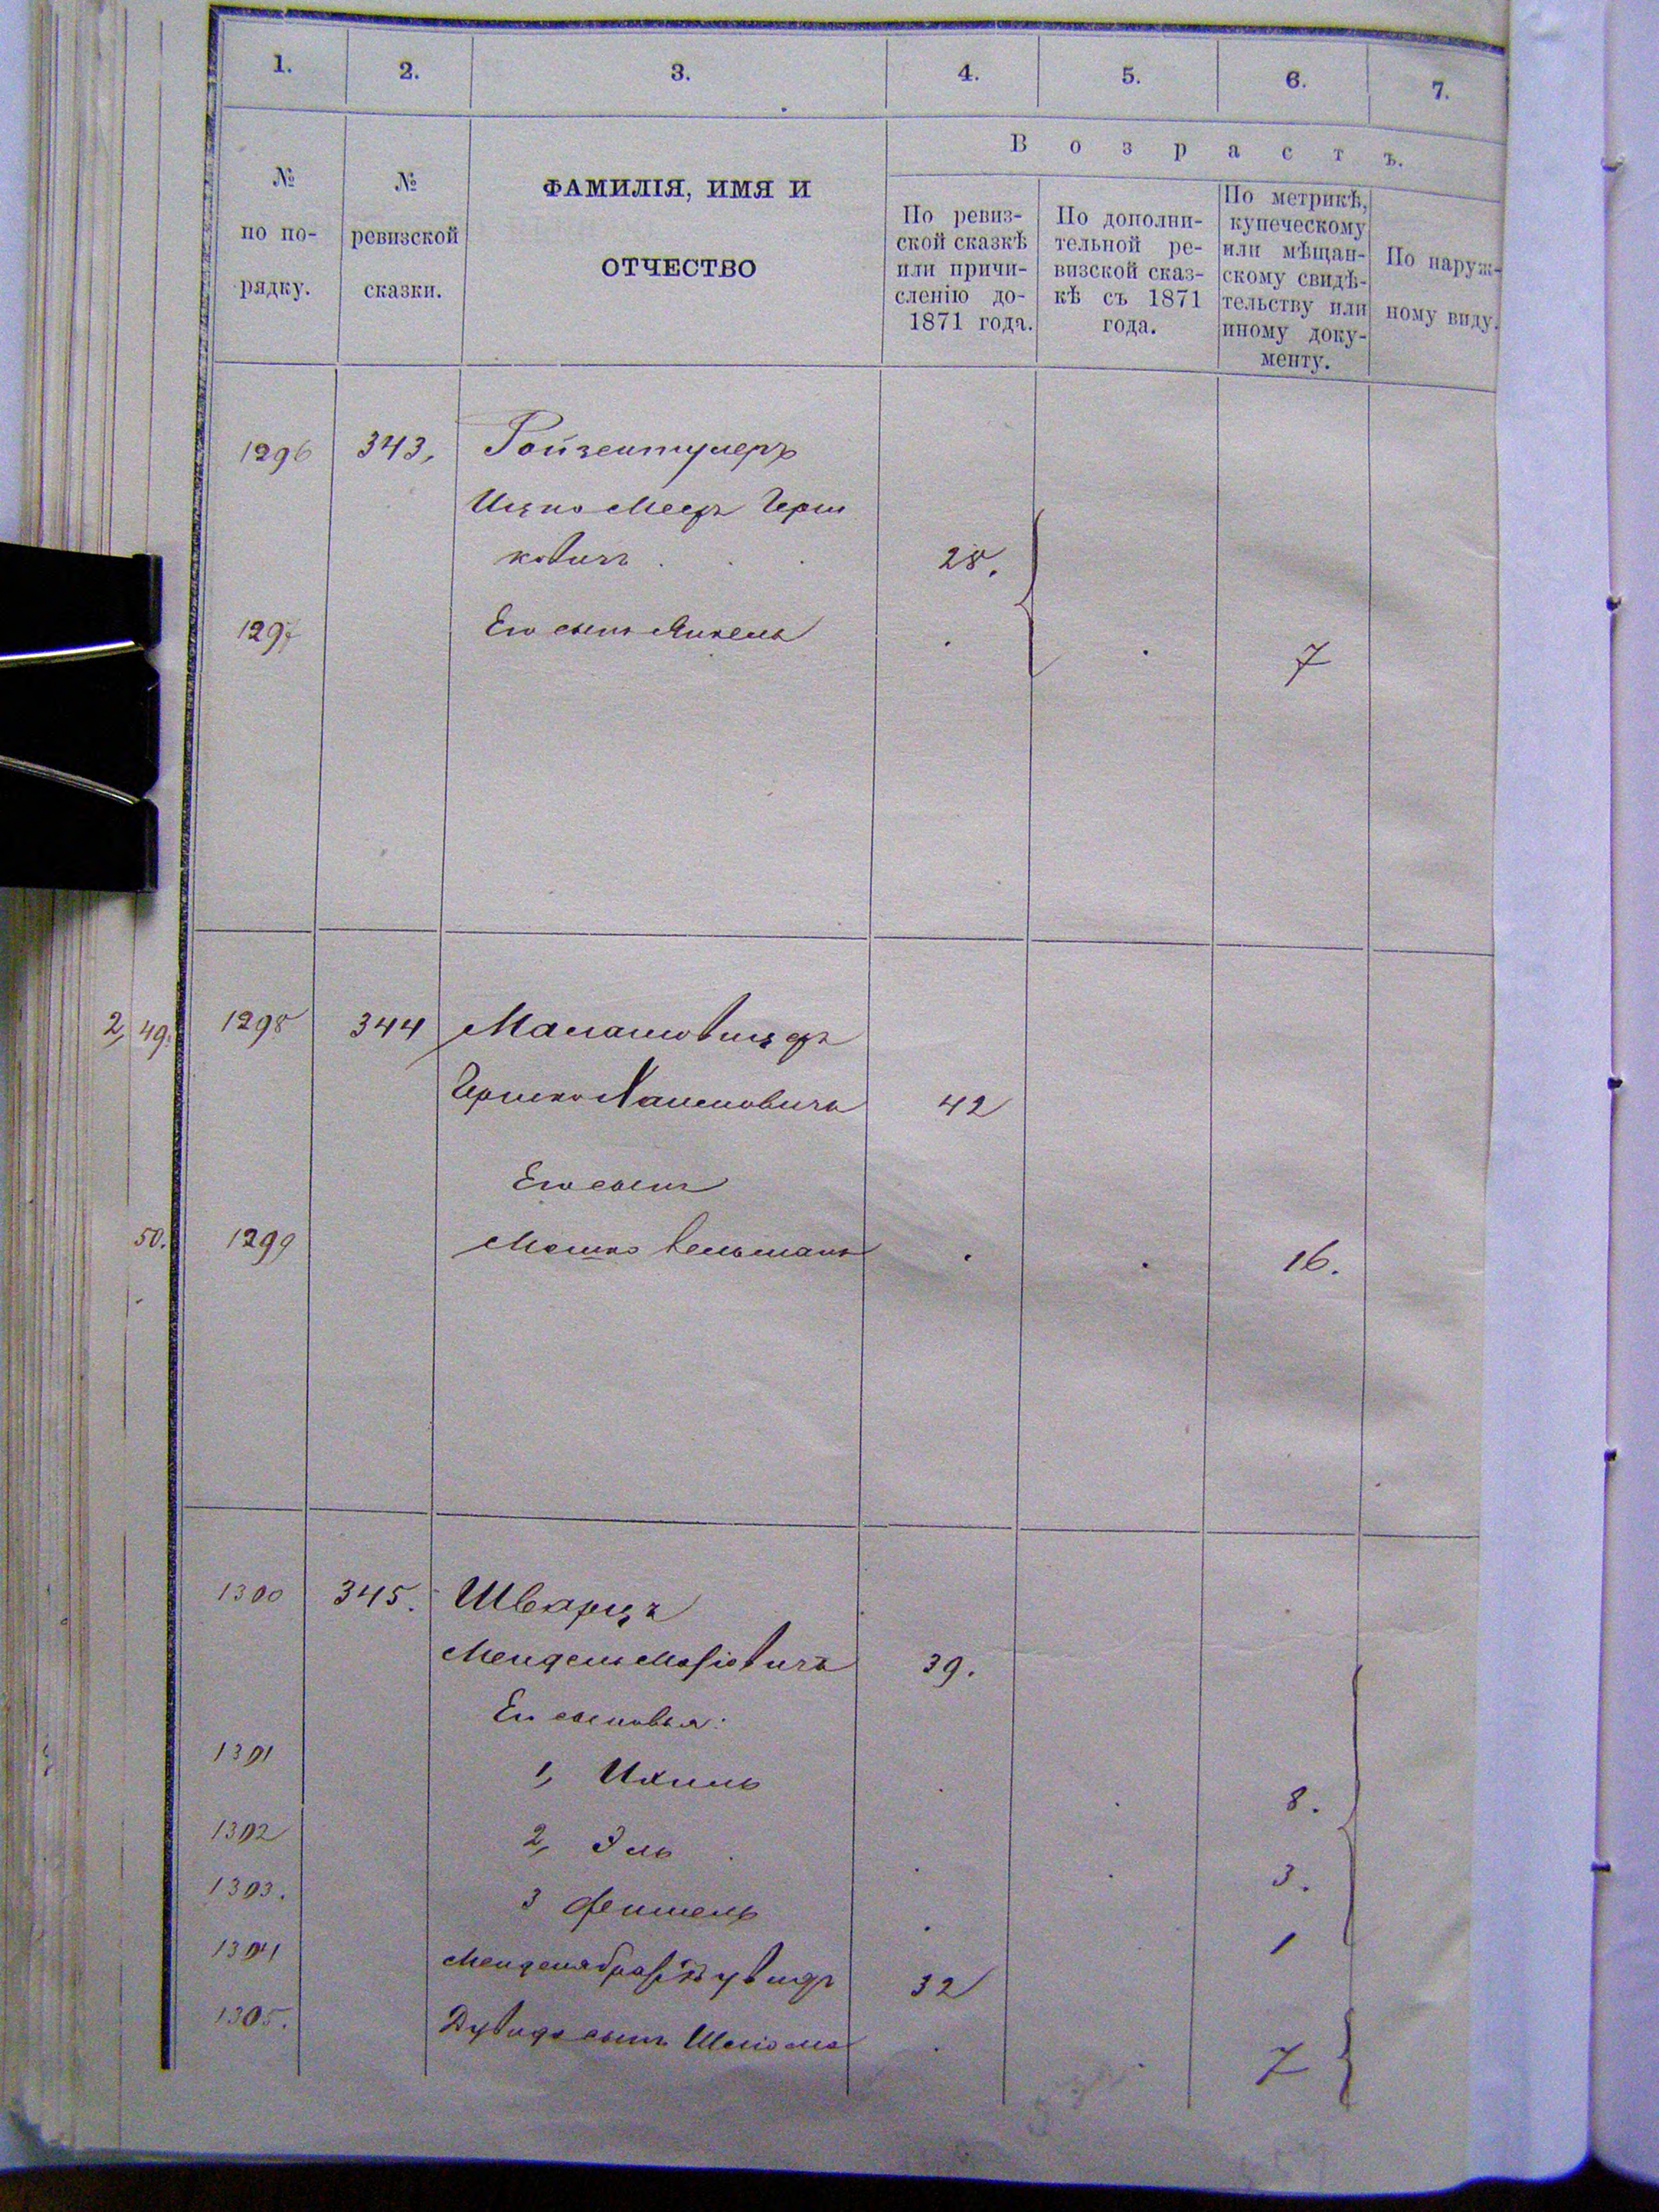 1. 2. 3. 4. 5. 6. 7.
Возрастъ.
№ по по- рядку.
№ ревизской сказки.
ФАМИЛІЯ, ИМЯ И
ОТЧЕСТВО
По ревиз-
ской сказкѣ
или причи-
сленію до-
1871 года.
По дополни-
тельной ре-
визской сказ-
кѣ съ 1871
года.
По метрикѣ,
купеческому
или мѣщан-
скому свидѣ-
тельству или
иному доку-
менту.
По наруж-
ному виду.
1296 343,
Ицко Меер Герш
ковичъ . . . 28.
1297 Его сынъ Янкель . . 7
2, 49. 1298 344
Гершко Хаимовичъ 42
Его сынъ
50. 1299 Мошко Вельманъ . . 16.
1300 345. Шварцъ
Мендель Мо 39.
Его сыновья:
1301 1, Ихиль . . 8.
1302 2, Эль . . . 3.
1303. 3 Фишель . 1
1304 Менделя братъ Дувидъ 32
1305. Дувида сынъ Шлiома . . 7